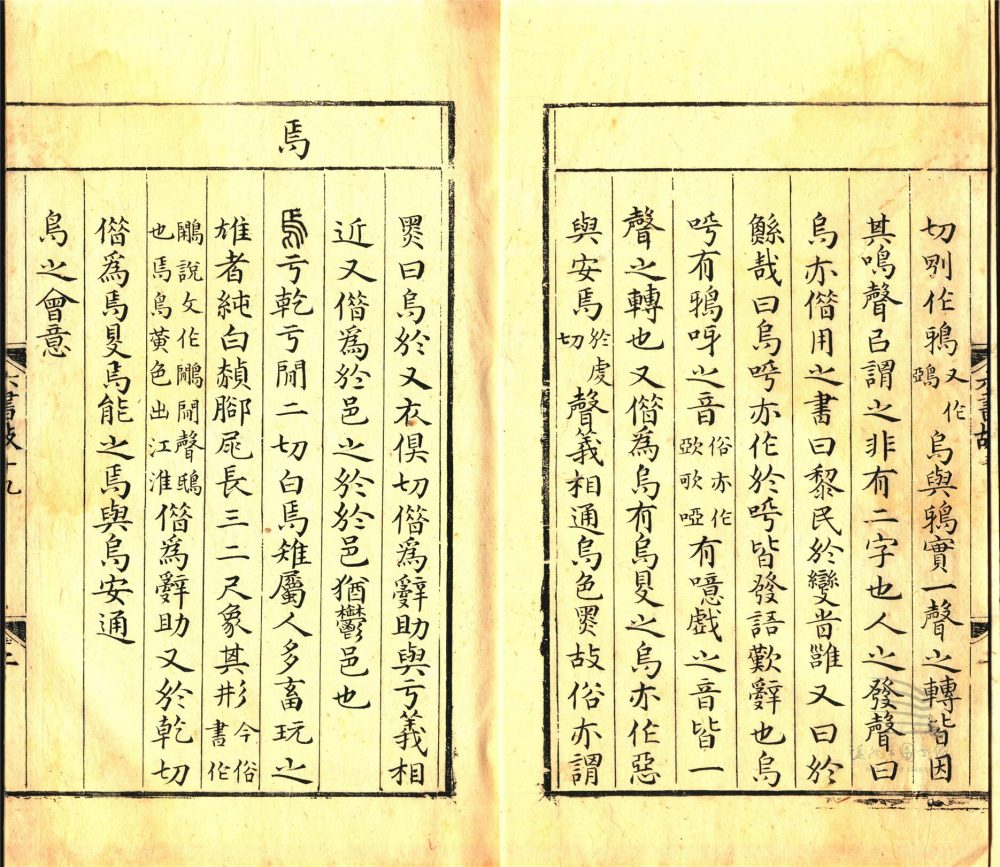 切別作鴉又作鵶烏與鴉實一聲之轉皆因
其鳴聲㠯謂之非有二字也人之發聲曰
烏亦僭用之書曰黎民於變旹雝又曰於
鯀哉曰烏呼亦作於呼皆發語歎辭也烏
呼有鴉呀之音俗亦作歍歌啞有噫戲之音皆一
聲之轉也又僭為烏有烏㪅之烏亦作惡
與安焉於虔切聲義相通烏色黑故俗亦謂
黑曰烏於又衣俱切僭爲辭助與亏義相
近又僭爲於邑之於於邑猶鬱邑也
焉
亏乾亏閒二切白焉雉屬人多畜玩之
雄者純白赬腳尾長三二尺象其形今俗書作
鷳說文作鷳閒聲鴟也焉鳥黃色出江淮僭爲辭助又於乾切
僭爲焉㪅焉能之焉與烏安通
鳥之會意
六書故十九